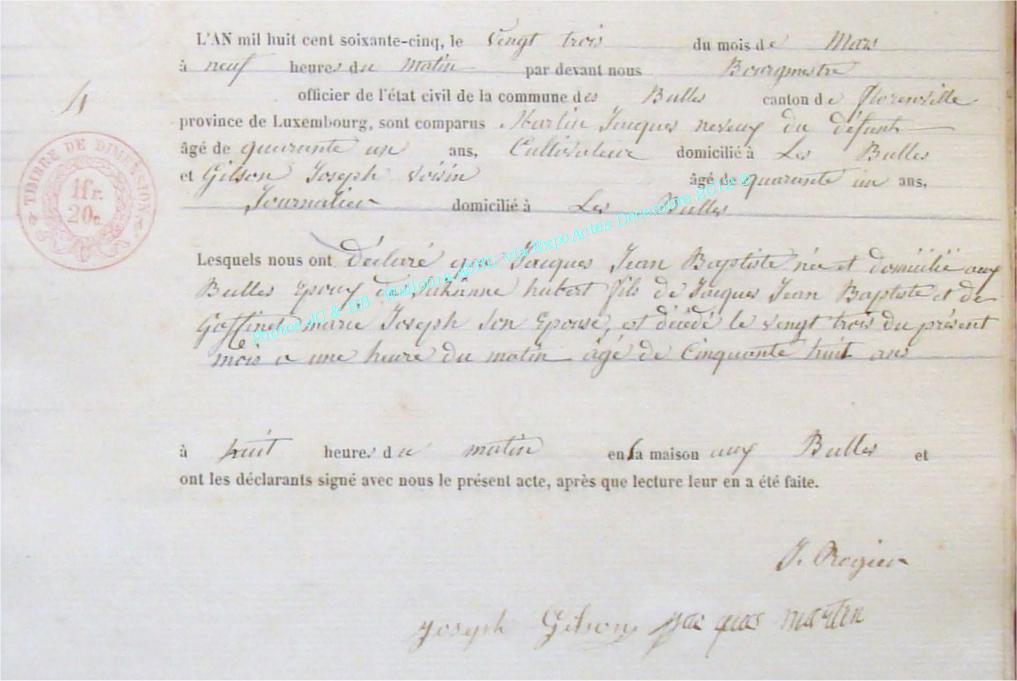 L'AN mil huit cent soixante-cinq, le vingt trois du mois de Mars
à neuf heures du matin par devant nous Bourgmestre
4
officier de l'état civil de la commune des Bulles canton de florenville
province de Luxembourg, sont comparus Martin Jacques neveux du défunt
âgé de quarante un ans, Cultivateur domicilié à Les Bulles
et Gilson Joseph voisin âgé de quarante un ans,
Journalier domicilié à Les Bulles
TIMBRE DE DIMENSION
1 fr.
20c.
Lesquels nous ont déclaré que Jacques Jean Baptiste née et domicilié aux
Bulles Epoux de hubert fils de Jacques Jean Baptiste et de
Goffinet marie Joseph son Epouse, est décédé le vingt trois du présent
mois a une heure du matin âgé de Cinquante huit ans
à huit heures du matin en la maison aux Bulles et
ont les déclarants signé avec nous le présent acte, après que lecture leur en a été faite.
J. Rogier
Joseph Gilson jacques martin
Photos JC & EB - Wallonie via ExpoActes Décembre 2012